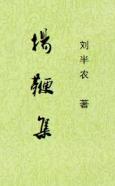 揚鞭集
刘半农 著